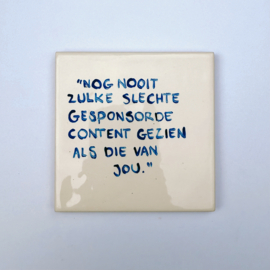 "NOG NOOIT
ZULKE SLECHTE
GESPONSORDE
CONTENT GEZIEN
ALS DIE VAN
JOU."